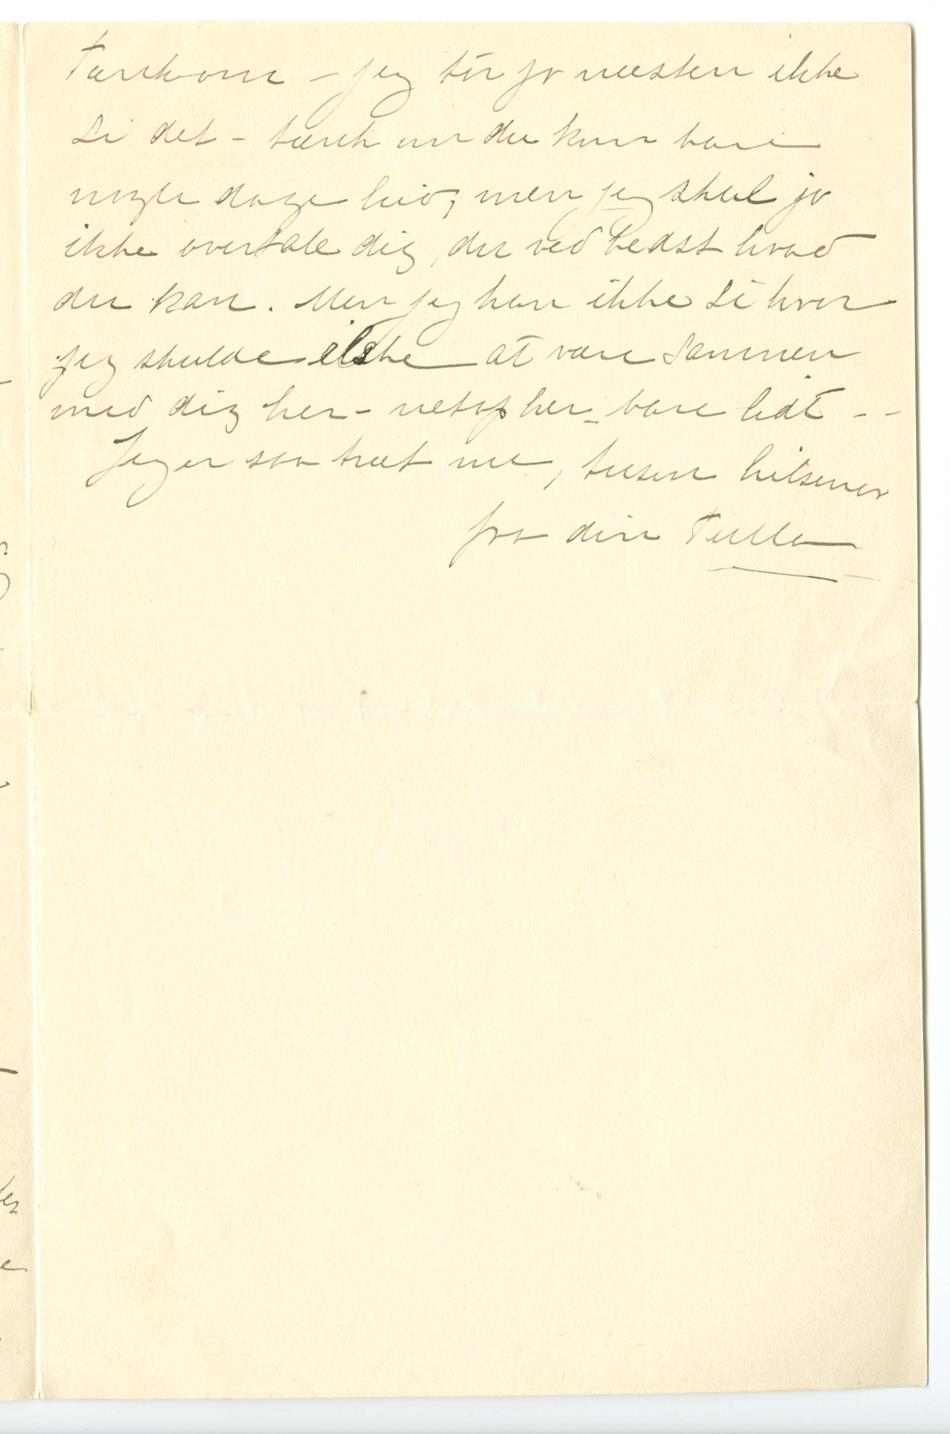 Tænk om – jeg tør jo næsten ikke
si det – tænk om du kom bare
nogle dage hid; men jeg skal jo
ikke overtale dig, du ved bedst hvad
du kan. Men jeg kan ikke si hvor
jeg skulde elske at være sammen
med dig her – netop her – bare lidt – –
Jeg er saa træt nu, tusen hilsener
fra din Tulla